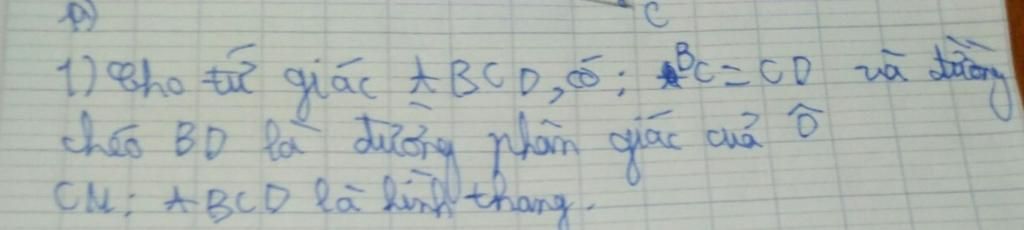 C
1) Cho tứ giác ABCD, có; BC = CD và đường
chéo BD là đường phân giác của D̂
CM: ABCD là hình thang.